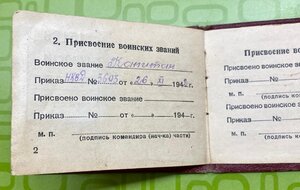 2. Присвоение воинских званий
Воинское звание Капитан
Приказ № 3695 от « 26 » XI 194
Присвоено воинское звание
Приказ № от « » 194 г.
м. п.
(подпись командира (нач-ка) части)
2
Присвоение в
Воинское звание
Приказ №
Присвоено воинское
Приказ №
м. п.
(подпись